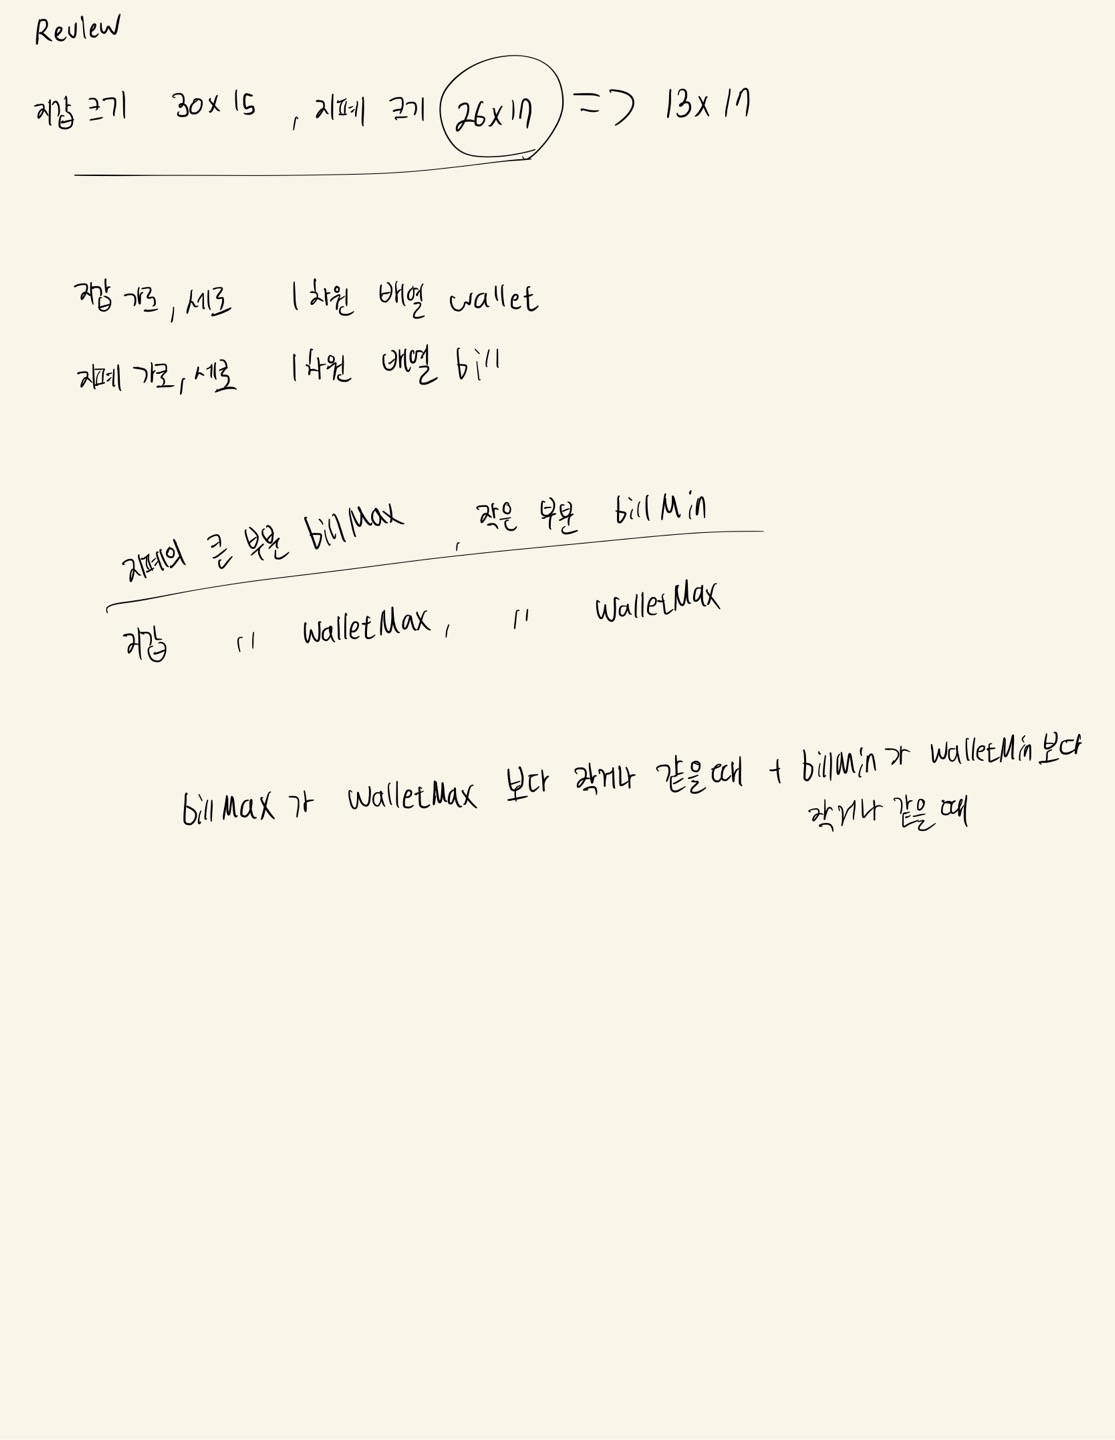 Review
지갑 크기 30x15 , 지폐 크기 26x17 => 13x17
지갑 가로, 세로 1차원 배열 wallet
지폐 가로, 세로 1차원 배열 bill
지폐의 큰 부분 billMax , 작은 부분 billMin
지갑 〃 walletMax, 〃 walletMax
billMax가 walletMax 보다 작거나 같을때 + billMin가 walletMin보다
작거나 같을때